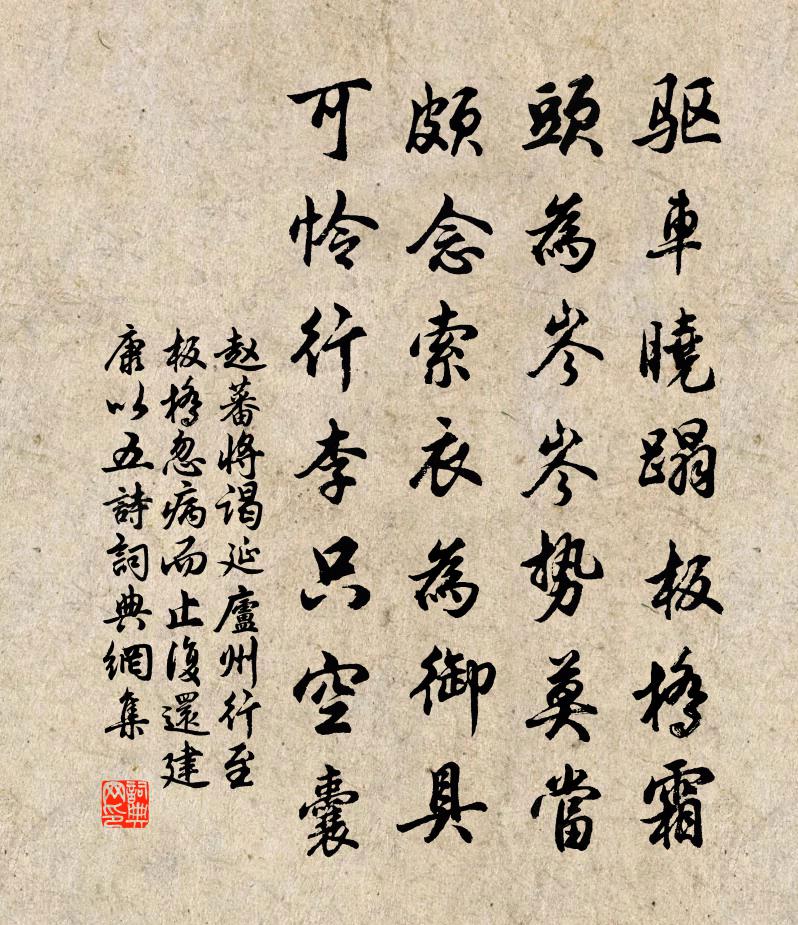 驱車曉蹋板橋霜
頭為岑岑勢莫當
頗念索衣為御具
可怜行李只空囊
赵蕃将谒延廬州行至
板橋忽病而止復還建
康以五詩詞典網集
詞典网印